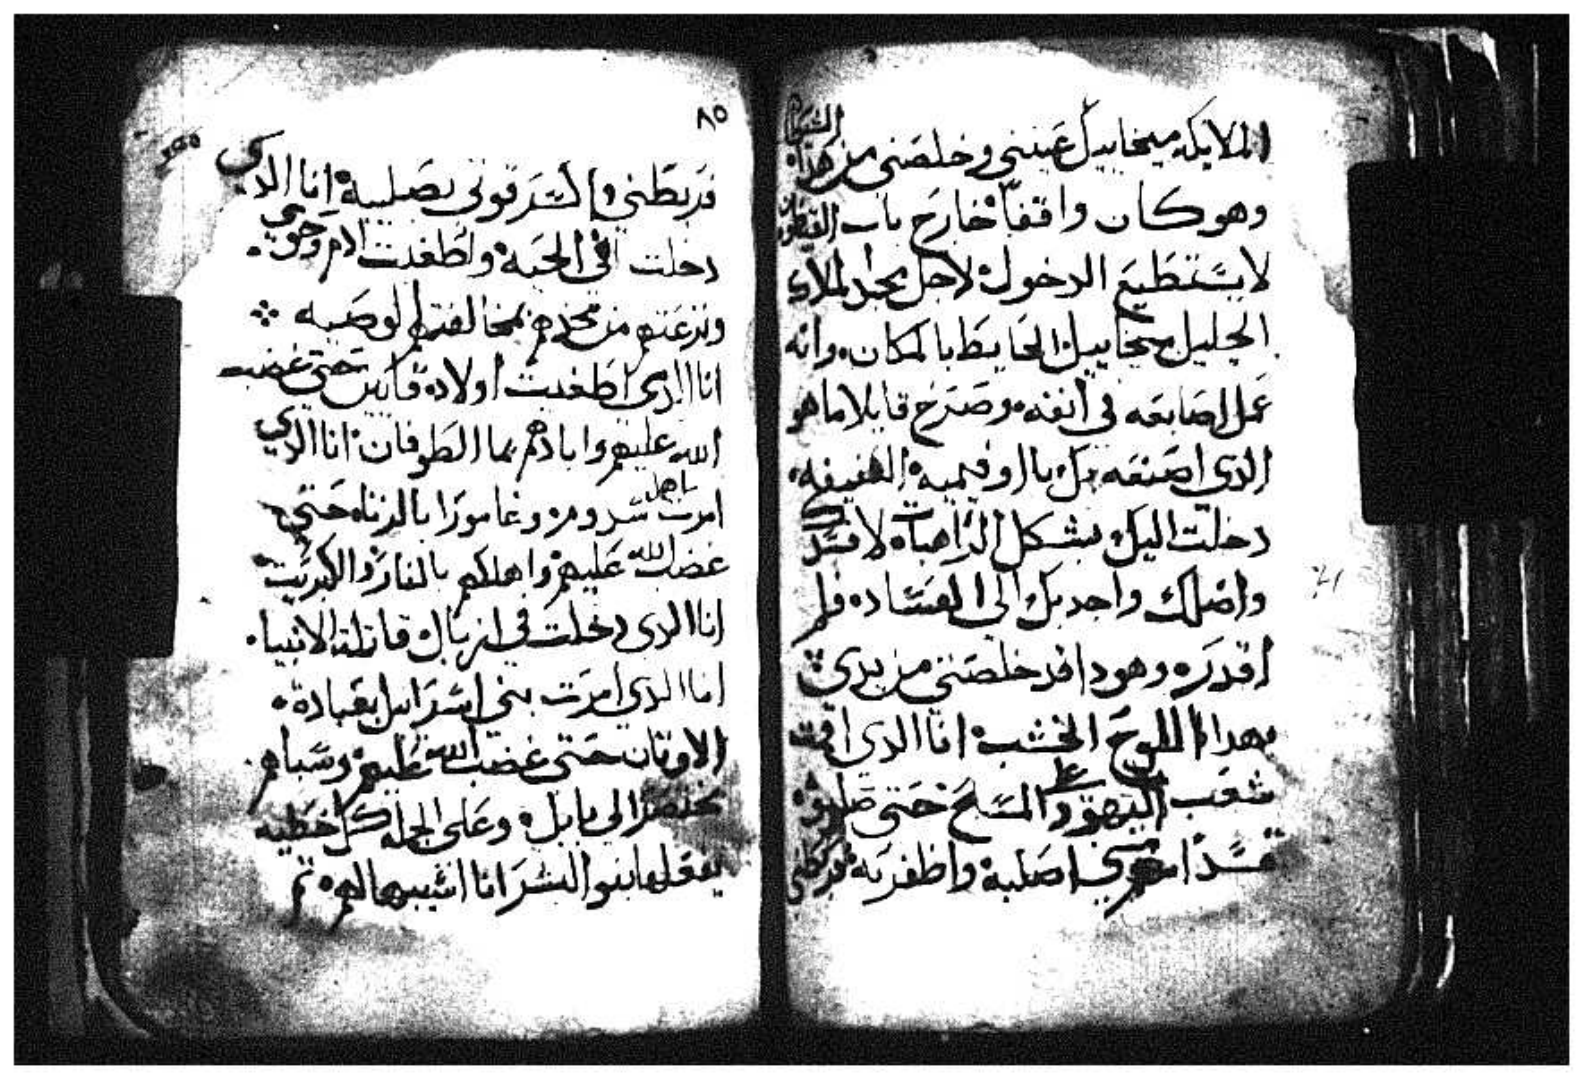 الملايكه ميخاييل عينني وخلصني من هدا الشيطان
وهو كان واقفاً خارج باب
لا يستطيع الدخول لاجل مجد الملاك
الجليل ميخاييل الحايط بالمكان وانه
عمل اصابعه في انفه وصرخ قايلا ما هو
الدي اصنعه بك يا اوفيميه العفيفه
دخلت اليك بشكل الراهبات لا
واضلك واجدبك الى الفساد فلم
اقدر وهودا قد خلصتي من يدي
بهدا اللوح الخشب انا الدي
شعب اليهود على المسيح حتى صلبوه
اصلبه واظفر به
٨٥
فربطني والشرقوني بصليبه انا الدي
دخلت في الحيه واطغيت ادم وحوي
ونزعتهم من مجدهم بمخالفتهم الوصيه
انا الدي اطغيت اولاد قايين حتى غضب
الله عليهم وابادهم بما الطوفان انا الدي
امرت باهل سدوم وغامورا بالزناه حتي
غضب الله عليهم واهلكهم بالنار والكبريت
انا الدي دخلت في ازبال قاتلة الانبيا
انا الدي امرت بني اسراييل بعبادة
الاوتان حتى غضب الله عليهم وسباهم
الى بابل وعلى الجمله كل خطيه
يفعلها بنو البشر انا اسببها لهم تم